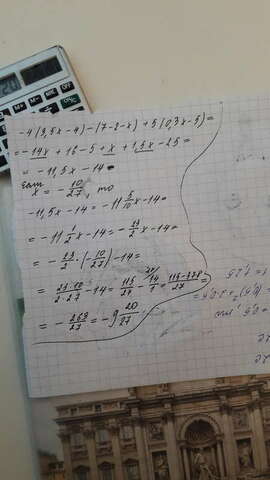 -4(3,5x-4)-(7-2-x)+5(0,3x-5)=
=-14x+16-5+x+1,5x-25=
=-11,5x-14
Если x=-10/27, то
-11,5x-14=-11 5/10 x-14=
=-11 1/2 x-14=-23/2 x-14=
=-23/2·(-10/27)-14=
=23·10/2·27-14=115/27-14/1=115-378/27=
=-263/27=-9 20/27